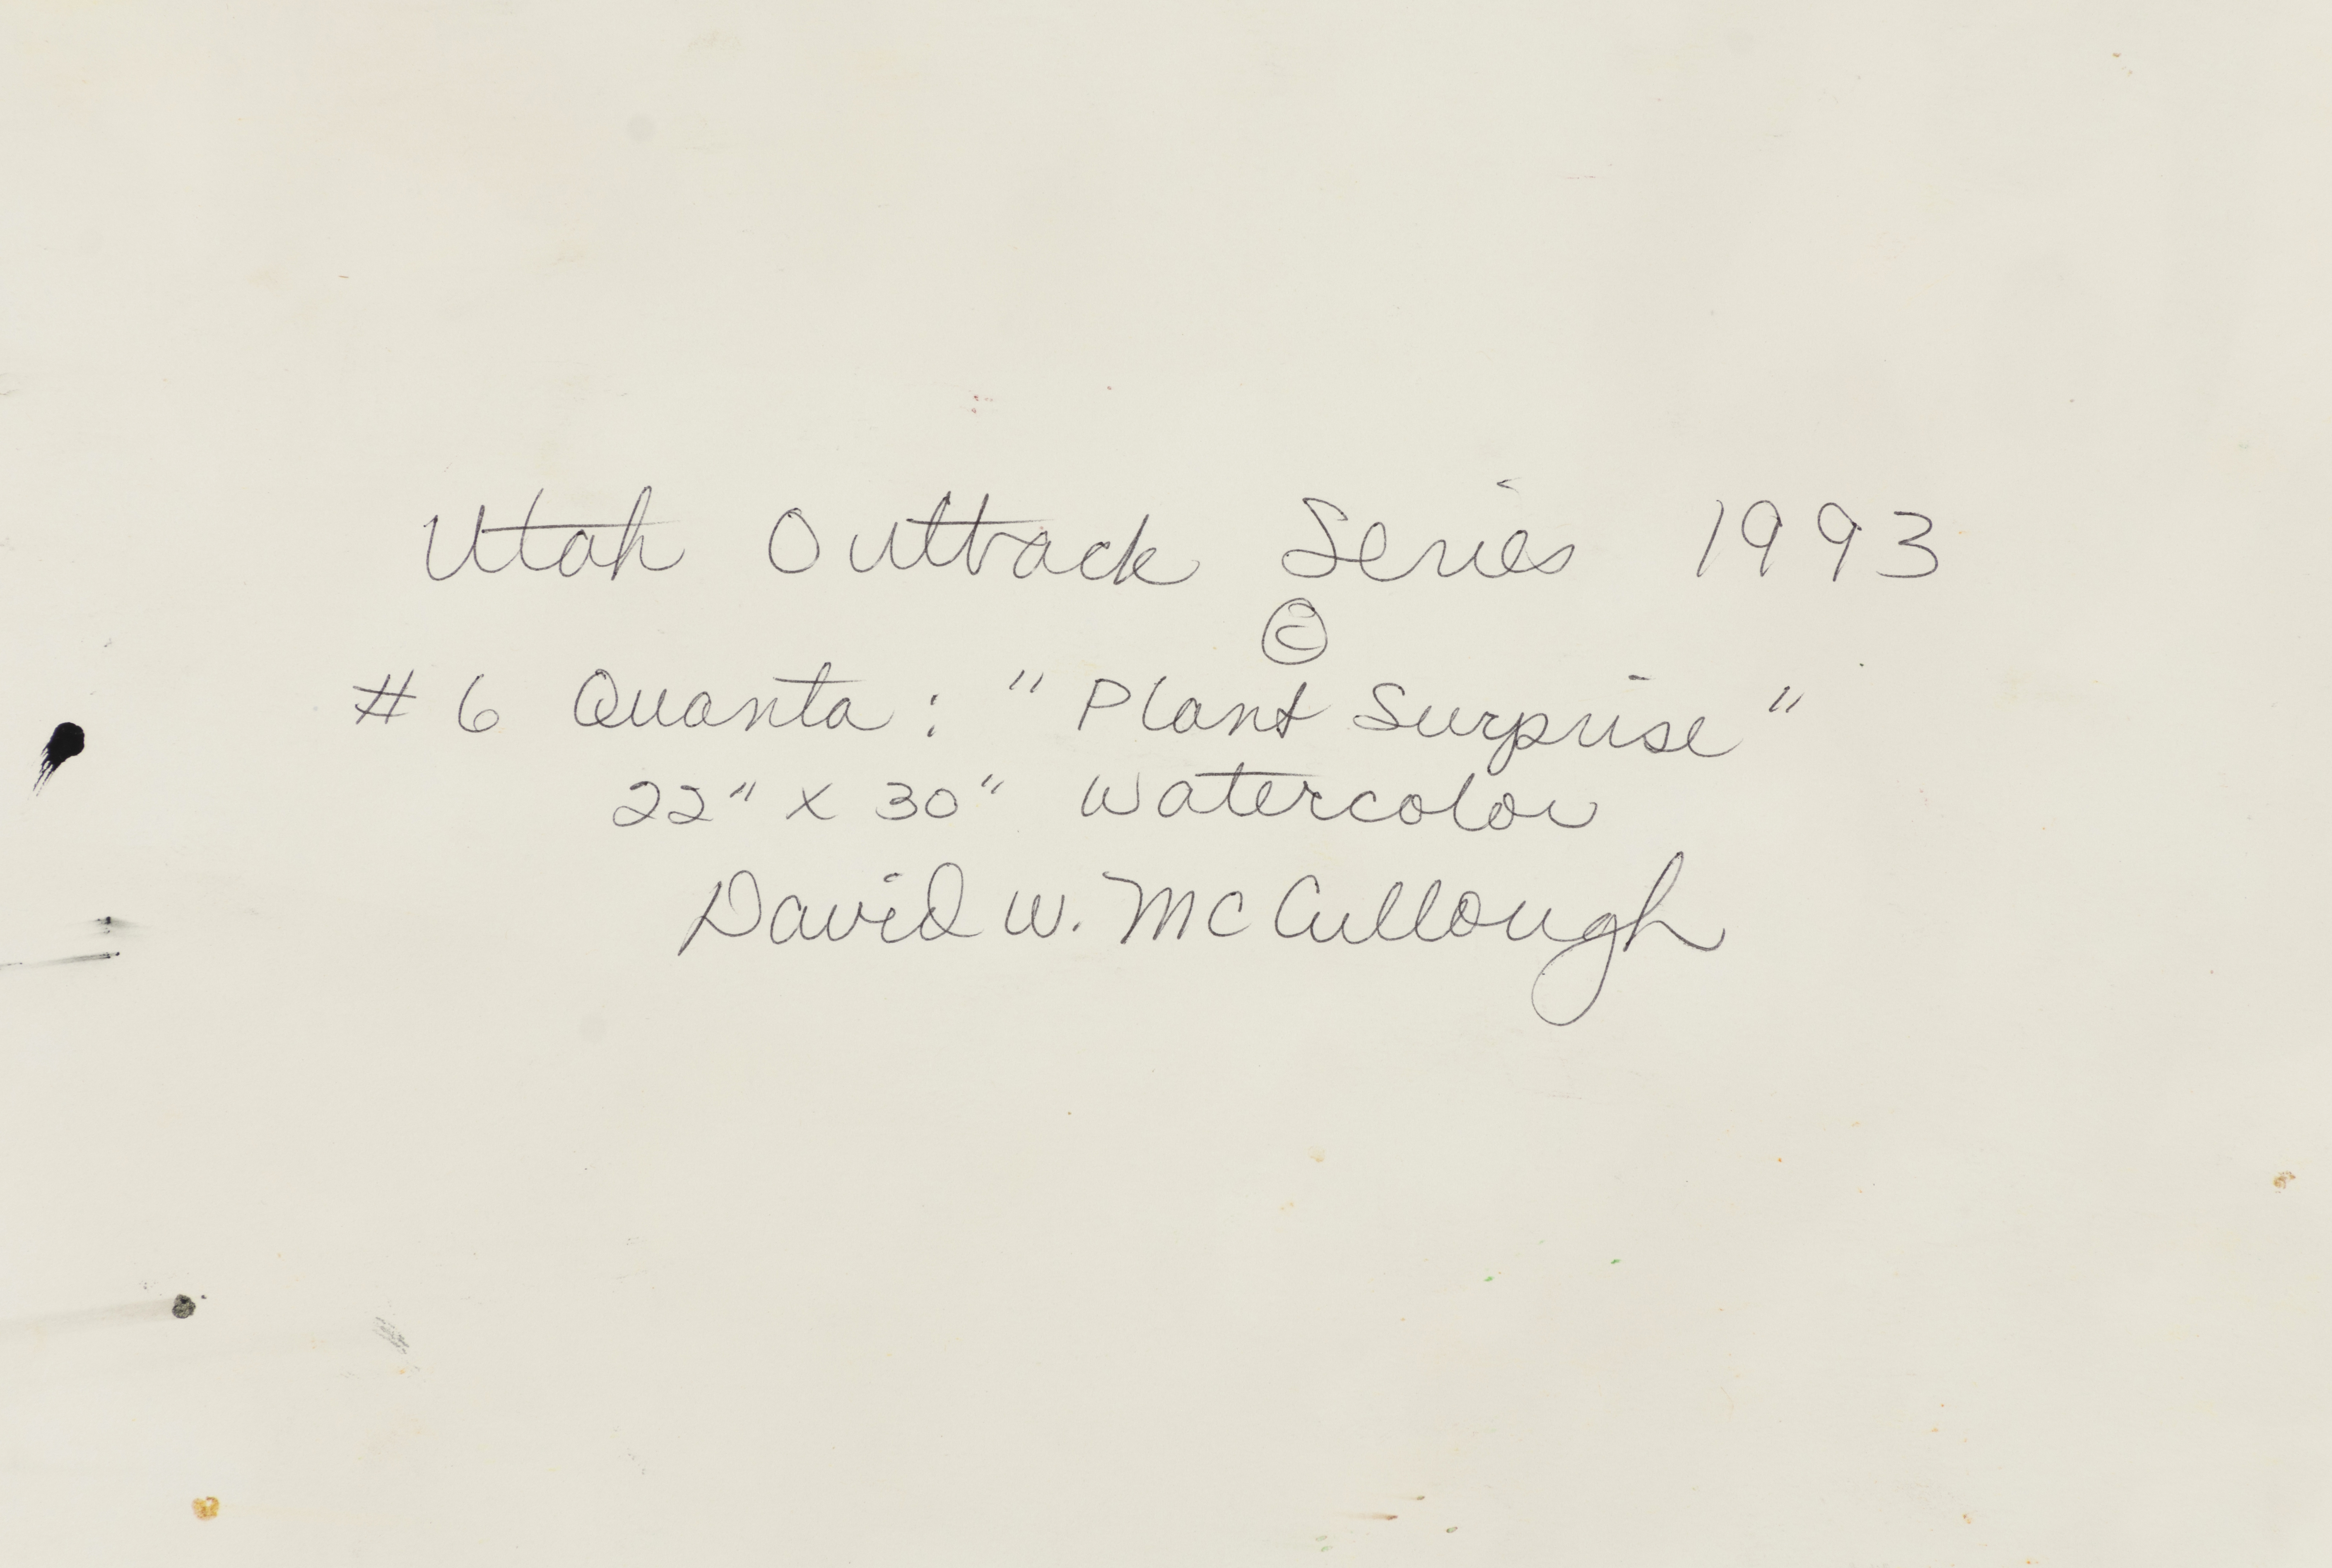 Utah Outback Series 1993
©
# 6 Quanta: "Plant Surprise"
22" x 30" Watercolor
David W. McCullough